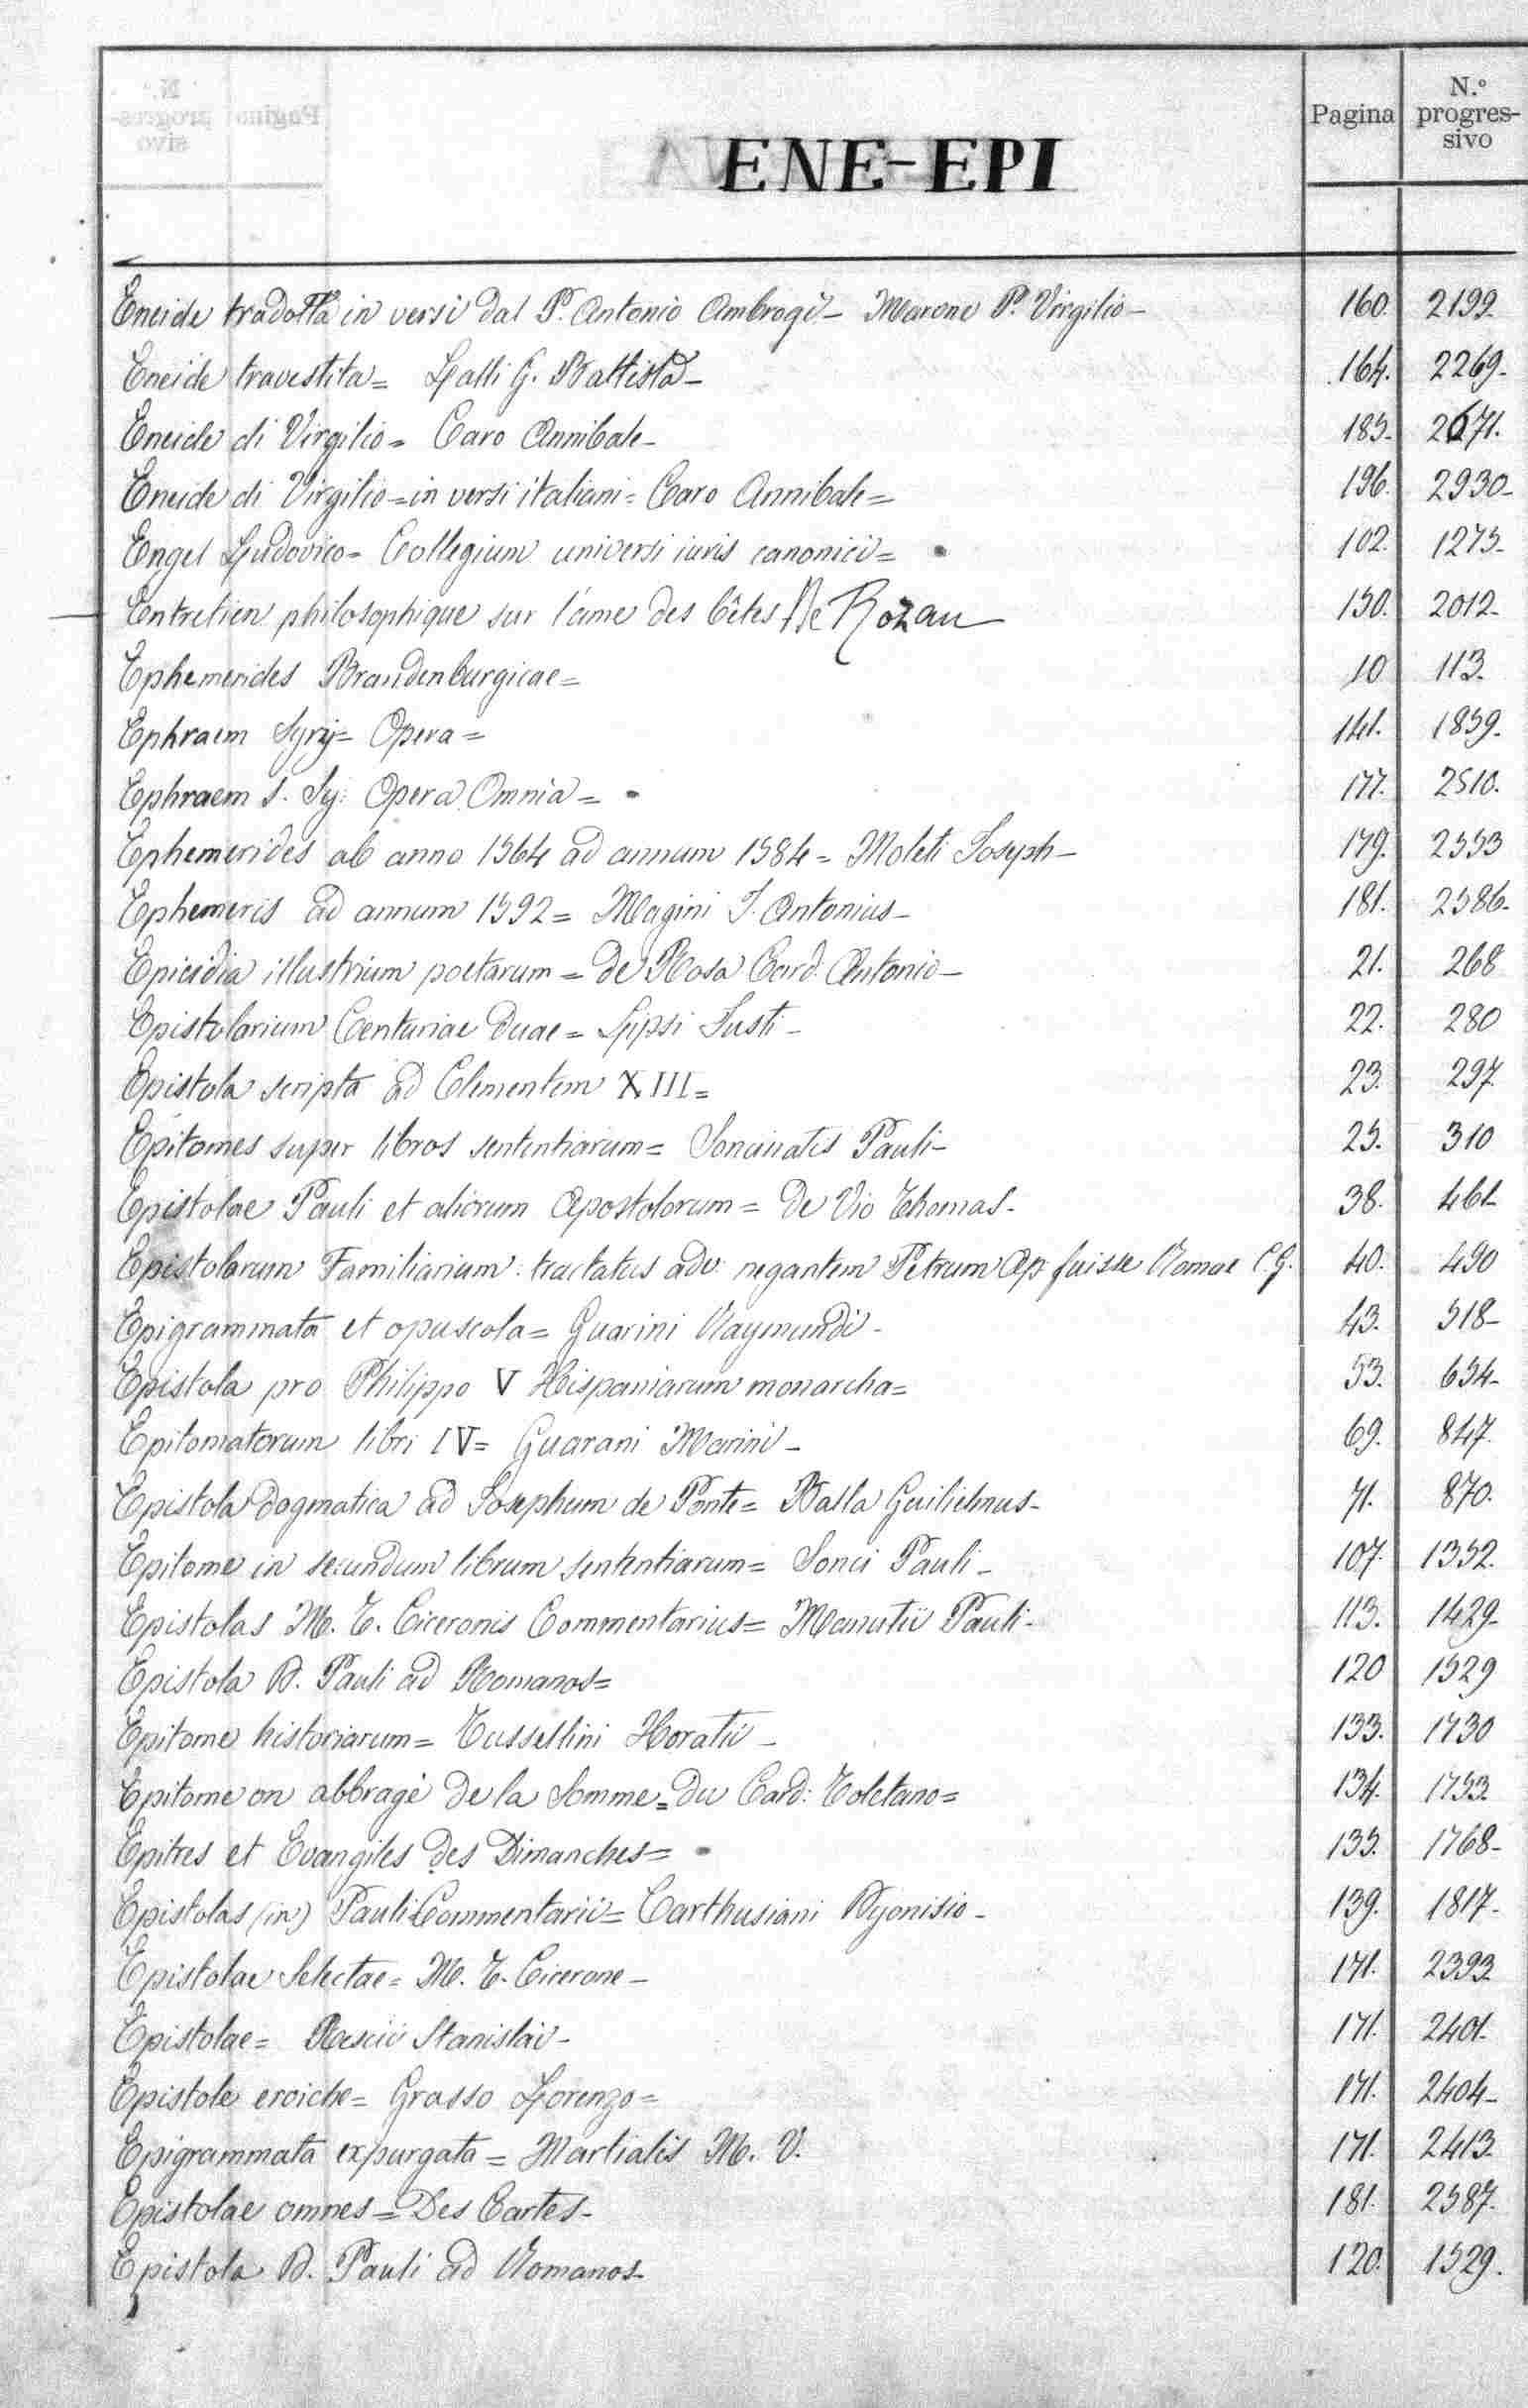 Pagina
N.º progres-
sivo
ENE-EPI
Eneide tradotta in versi dal P. Antonio Ambrogi - Marone P. Virgilio - 160. 2199-
Eneide travestita = Lalli G. Battista - 164. 2269-
Eneide di Virgilio = Caro Annibale - 185. 2671.
Eneide di Virgilio = in versi italiani = Caro Annibale = 196. 2930-
Engel Ludovico = Collegium universi iuris canonici = 102. 1275-
Entretien philosophique sur l'ame des bêtes De Rozau 150. 2012-
Ephemerides Brandenburgicae = 10 113.
Ephraem Syrij = Opera = 141. 1859-
Ephraem S. Sy: Opera Omnia = 177. 2510.
Ephemerides ab anno 1564 ad annum 1584 = Moleti Joseph - 179. 2553
Ephemeris ad annum 1592 = Magini J. Antonius - 181. 2586-
Epicidia illustrium poetarum = de Rosa Card. Antonio - 21. 268
Epistolarium Centuriae duae = Lipsi Justi - 22. 280
Epistola scripta ad Clementem XIII = 23. 297.
Epitomes super libros sententiarum = Soncinatis Pauli - 25. 310
Epistolae Pauli et aliorum Apostolorum = de Vio Thomas - 38. 461-
Epistolarum Familiarium: tractatus adv: negantem Petrum Ap: fuisse Romae C. G. 40. 490
Epigrammata et opuscola = Guarini Raymundi - 43. 518-
Epistola pro Philippo V Hispaniarum monarcha = 53. 654-
Epitomatorum libri IV = Guarani Marini - 69. 847.
Epistola dogmatica ad Josephum de Ponte = Balla Guilielmus - 71. 870.
Epitome in secundum librum sententiarum = Sonci Pauli - 107. 1352.
Epistolas M. T. Ciceronis Commentarius = Manutii Pauli - 113. 1429-
Epistola B. Pauli ad Romanos = 120 1529
Epitome historiarum = Tussellini Horatii - 133. 1730
Epitome on abbragè de la Somme = du Card: Toletano = 134. 1753.
Epitres et Evangiles des Dimanches = 135. 1768-
Epistolas (in) Pauli Commentarii = Carthusiani Dyonisio - 139. 1817-
Epistolae Selectae = M. T. Cicerone - 171. 2393
Epistolae = Rescii Stanislai - 171. 2401-
Epistole eroiche = Grasso Lorenzo = 171. 2404-
Epigrammata expurgata = Martialis M. V. 171. 2413
Epistolae omnes = Des Cartes - 181. 2587.
Epistola B. Pauli ad Romanos - 120. 1529.